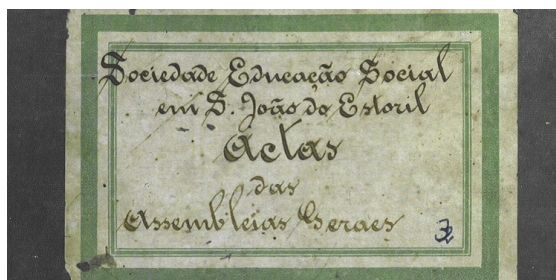 Sociedade Educação Social
em S. João do Estoril
Actas
das
Assembleias Geraes